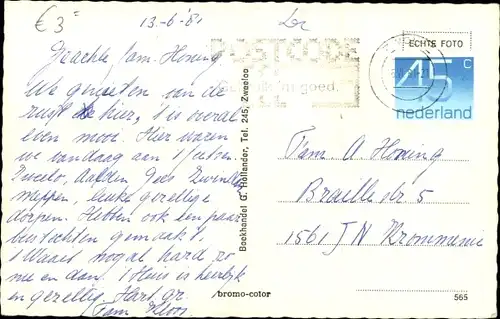 € 3=
13-6'81
Geachte fam. Honing
We genieten van de
rust hier, 't is overal
even mooi. Hier waren
we vandaag aan 't fietsen.
Zweelo, Aalden Gees Zwin
meppen, leuke gezellige
dorpen. Hebben ook een paar
bustochten gemaakt.
't Waait nogal hard zo
nu en dan. 't Huis is heerlijk
en gezellig. Hart. gr.
Fam Kloos
POSTCODE
goed.
ECHTE FOTO
45 c
nederland
Boekhandel G. Hollander, Tel. 245, Zweeloo
Fam. A. Honing
Braille str 5
1561 JN Krommenie
bromo-color
565